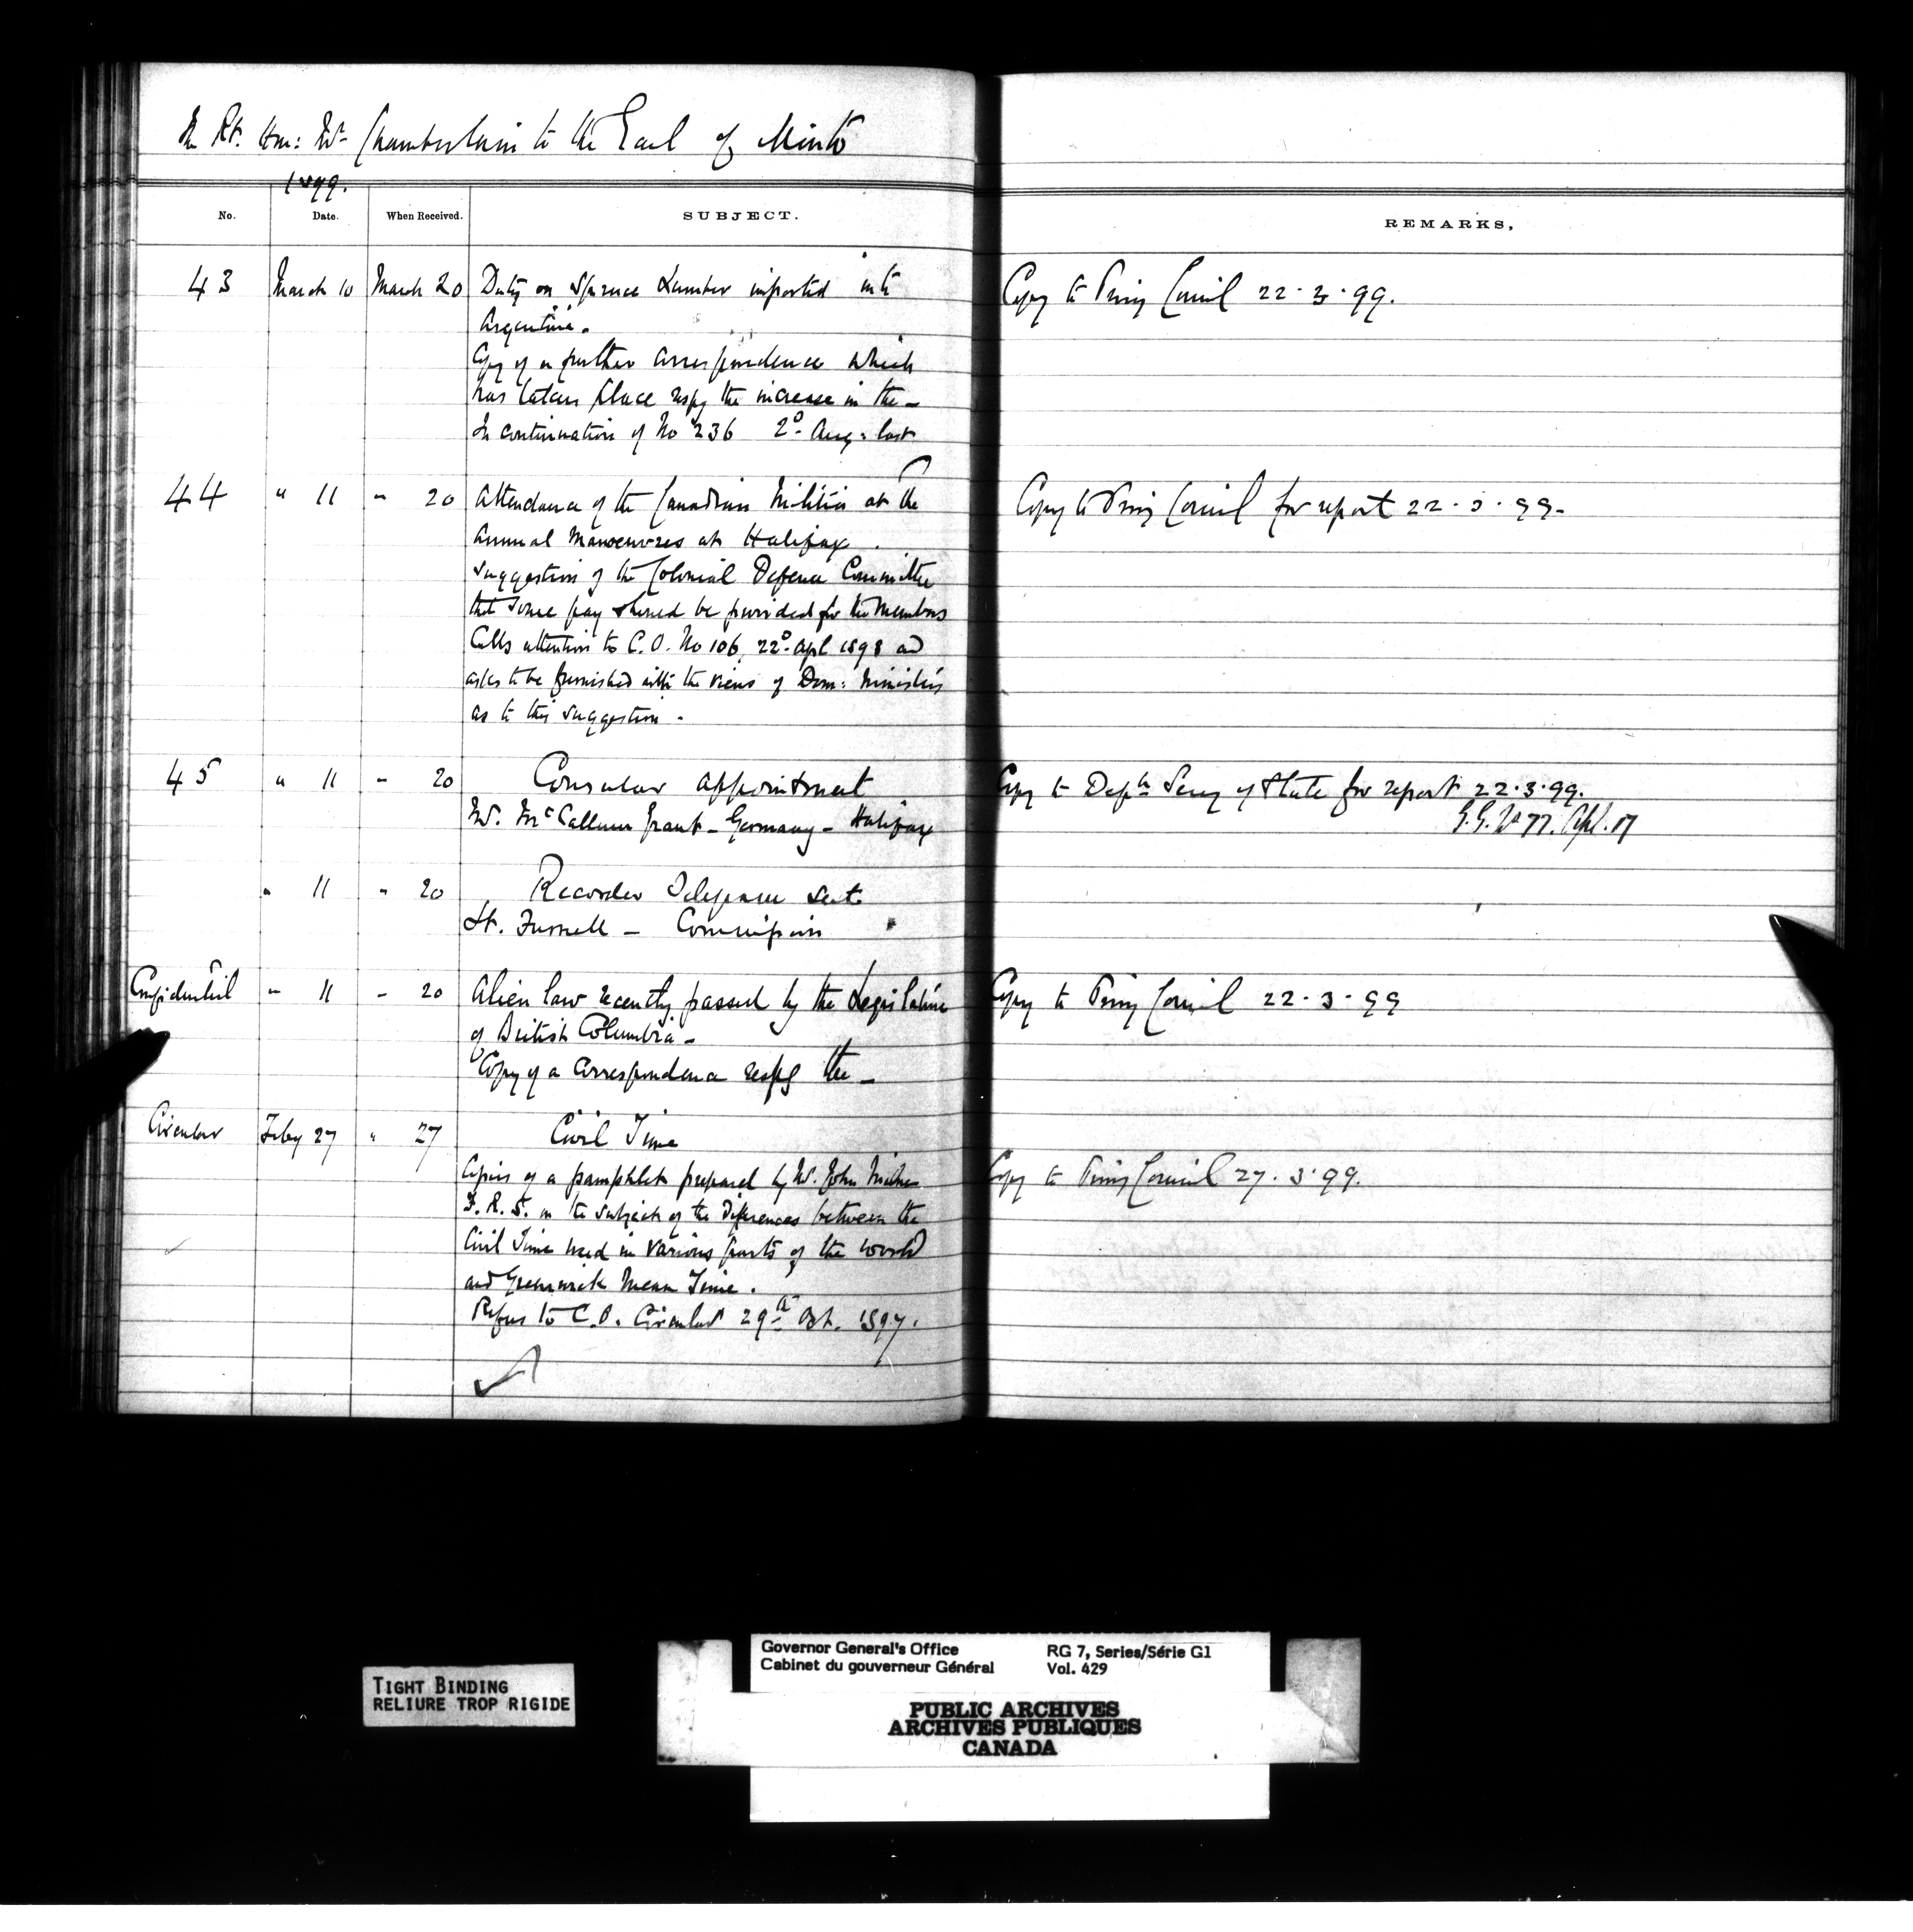 The Rt. Hon: Mr. Chamberlain to the Earl of Minto
1899.
No. Date. When Received. SUBJECT. REMARKS.
43 March 10 March 20 Duty on Spruce Lumber imported into Copy to Privy Council 22.3.99.
Argentina.
Copy of a further correspondence which
has taken place respg the increase in the—
In continuation of No 236 2d. Aug. last
44 " 11 " 20 Attendance of the Canadian Militia at the Copy to Privy Council for report 22.3.99.
Annual Manoeuvres at Halifax.
Suggestion of the Colonial Defence Committee
that some pay should be provided for the members
Calls attention to C.O. No 106, 22d. Apl 1898 and
asks to be furnished with the views of Dom: Ministers
as to this suggestion.
45 " 11 " 20 Consular Appointment Copy to Depty Secy of State for report 22.3.99.
Mr. McCallum Grant — Germany — Halifax G.G. No 77. Apl. 17
" 11 " 20 Recorder sent
Lt. — Commission
Confidential " 11 " 20 Alien law recently passed by the Legislature Copy to Privy Council 22.3.99
of British Columbia —
Copy of a Correspondence respg the —
Circular Feby 27 " 27 Civil Time
Copies of a pamphlet prepared by Mr. John Milne Copy to Privy Council 27.3.99.
F.R.S. on the subject of the Differences between the
Civil Time used in various parts of the world
and Greenwich Mean Time.
Refers to C.O. Circular 29th Oct. 1897.
TIGHT BINDING
RELIURE TROP RIGIDE
Governor General's Office RG 7, Series/Série G1
Cabinet du gouverneur Général Vol. 429
PUBLIC ARCHIVES
ARCHIVES PUBLIQUES
CANADA